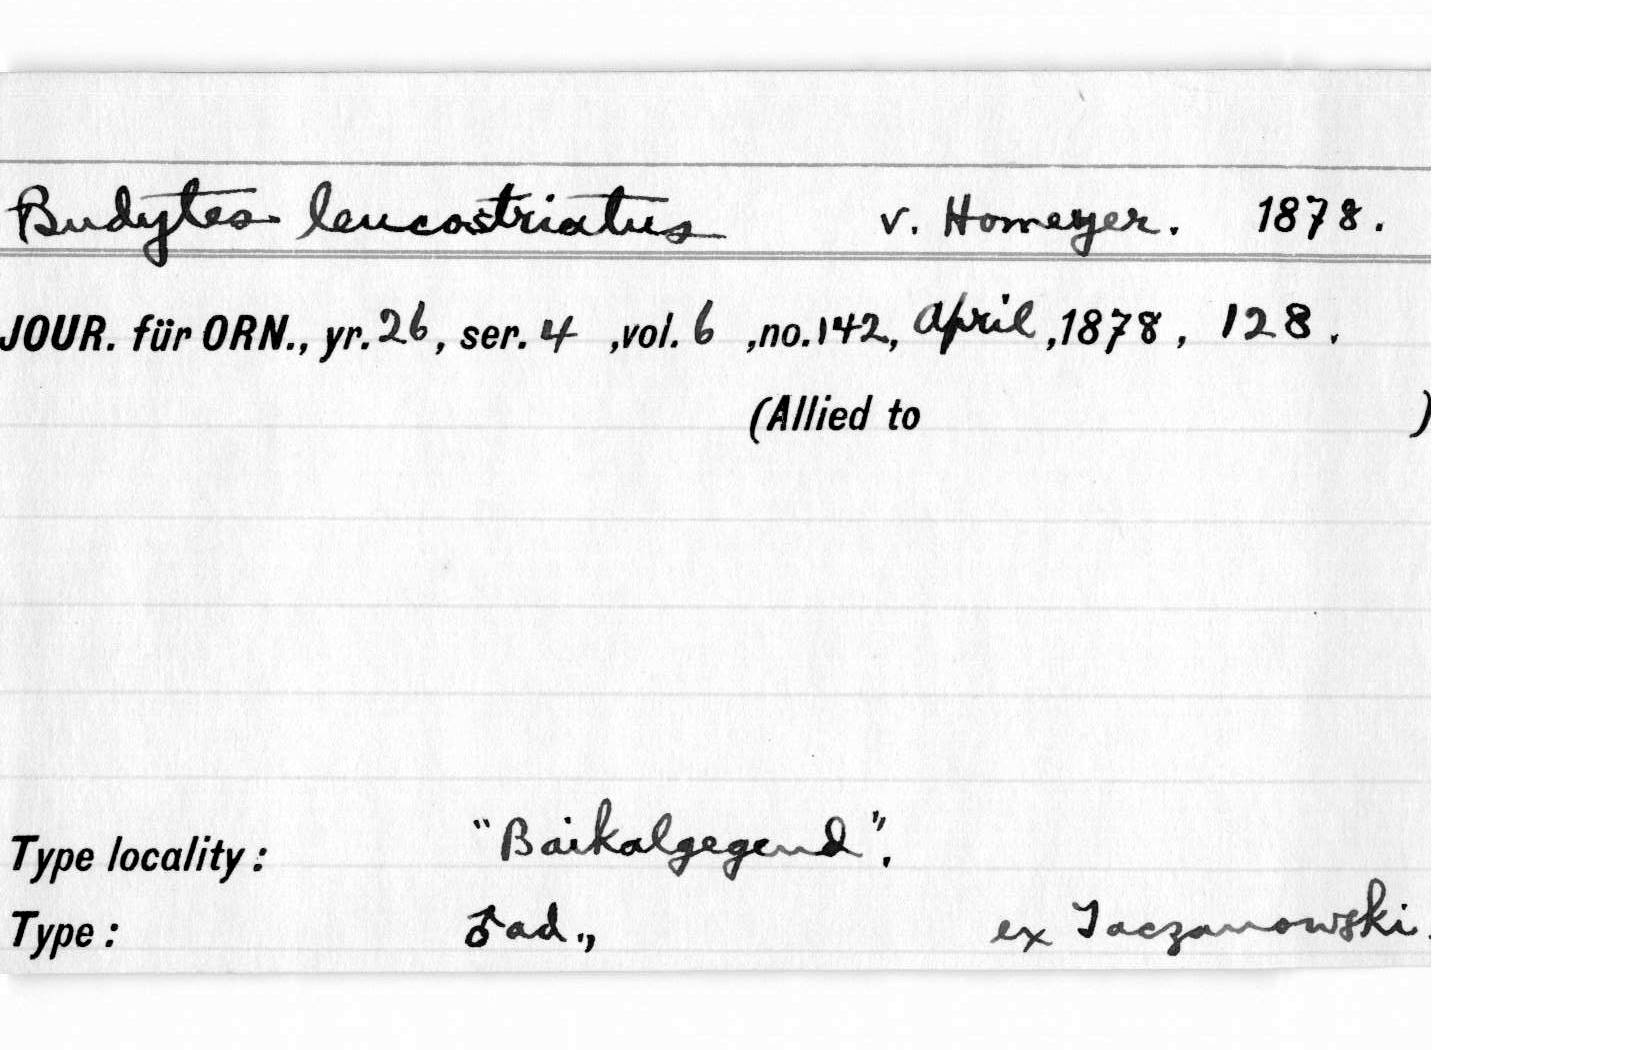 Budytes leucostriatus v. Homeyer. 1878.
JOUR. für ORN., yr. 26, ser. 4 ,vol. 6 ,no. 142, April ,1878, 128.
(Allied to )
Type locality: "Baikalgegend".
Type: ♂ ad., ex Taczanowski.